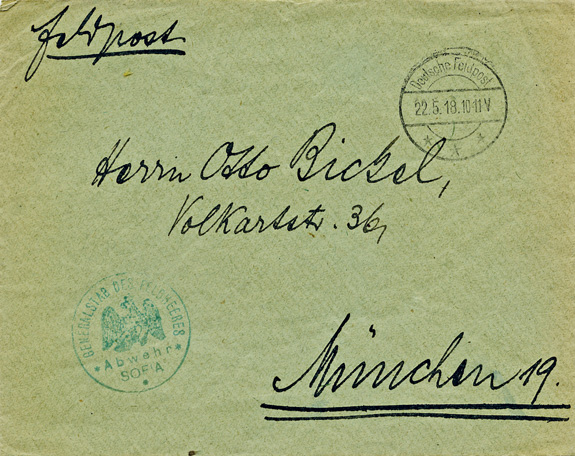 Feldpost
Deutsche Feldpost
22.5.18.10-11V
* * *
Herrn Otto Bickel,
Volkartstr. 36,
GENERALSTAB DES FELDHEERES
* Abwehr *
SOFIA
München 19.